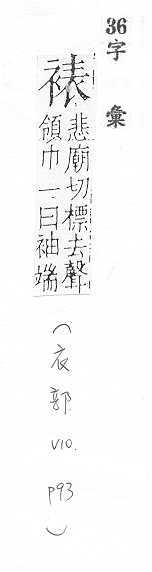 36字彙
裱
悲廟切標去聲
領巾一曰袖端
(衣部
V10.
P93
)